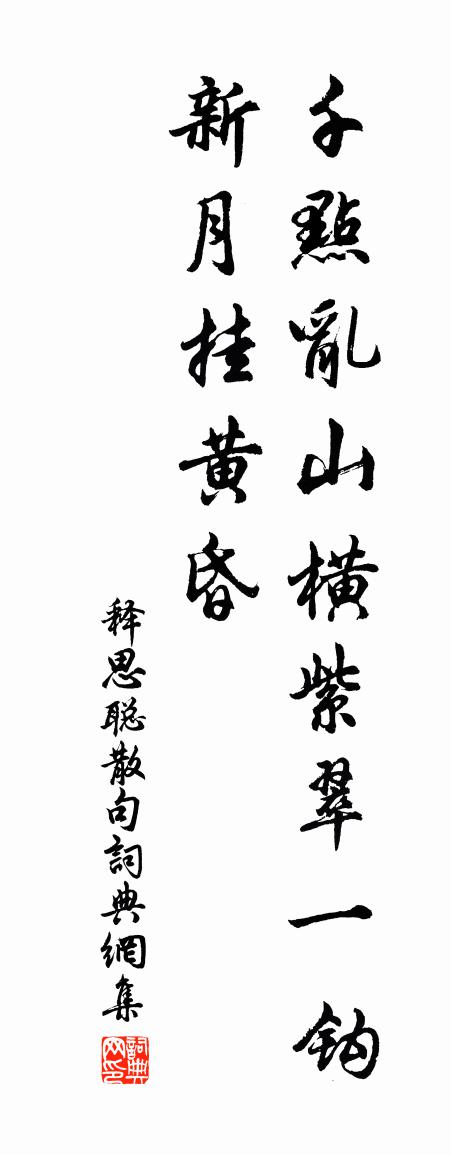 千點亂山橫紫翠一鈎
新月挂黄昏
释思聪散句詞典網集
詞典网印